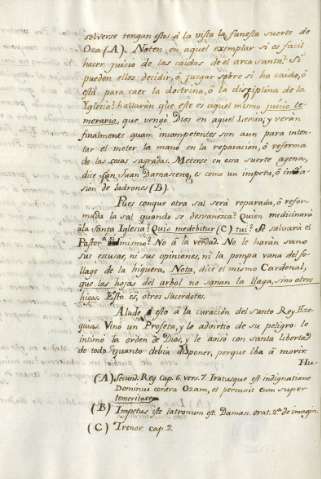 solverse tengan estos à la vista la funesta suerte de
Oza (A). Noten en aquel exemplar si es facil
hacer juicio de las caidas de el arca santa? Si
pueden ellos decidir, ó juzgar sobre si ha caido, ó
está para caer la doctrina, ó la disciplina de la
Yglesia? hallarán que este es aquel mismo juicio te-
merario, que vengó Dios en aquel , y verán
finalmente quam incompetentes son aun para inten-
tar el meter la mano en la reparacion, ó reforma
de las cosas sagradas. Meterse en esta suerte agena,
dice San Juan Damasceno, es como un impetu, ó inva-
sion de ladrones (B).
Pues conque otra sal será reparada, ó refor-
mada la sal quando se desvanezca? Quien medicinará
ala Santa Yglesia? Quis medebitur (C) tui? Se salvará el
Pastor à si mismo? No à la verdad. No le harán sano
sus escusas, ni sus opiniones, ni la pompa vana del fo-
llage de la higuera. Nota, dice el mismo Cardenal,
que las hojas del arbol no sanan la llaga, sino otros
higos. Esto es, otros Sacerdotes.
Alude à esto à la curacion del Santo Rey Eze-
quias. Vino un Profeta, y lo adviertio de su peligro: le
intimo la orden de Dios, y le aviso con santa libertad
de todo quanto debia disponer, porque iba à morir
Hu-
(A) Secund. Reg. cap. 6. vers. 7. Iratusque est indignatione
Dominus contra Ozam, et percusit eum super
temeritate
(B) Impetus est latronum Damas. orat. 2ª de imagin.
(C) Trenor. cap. 2.